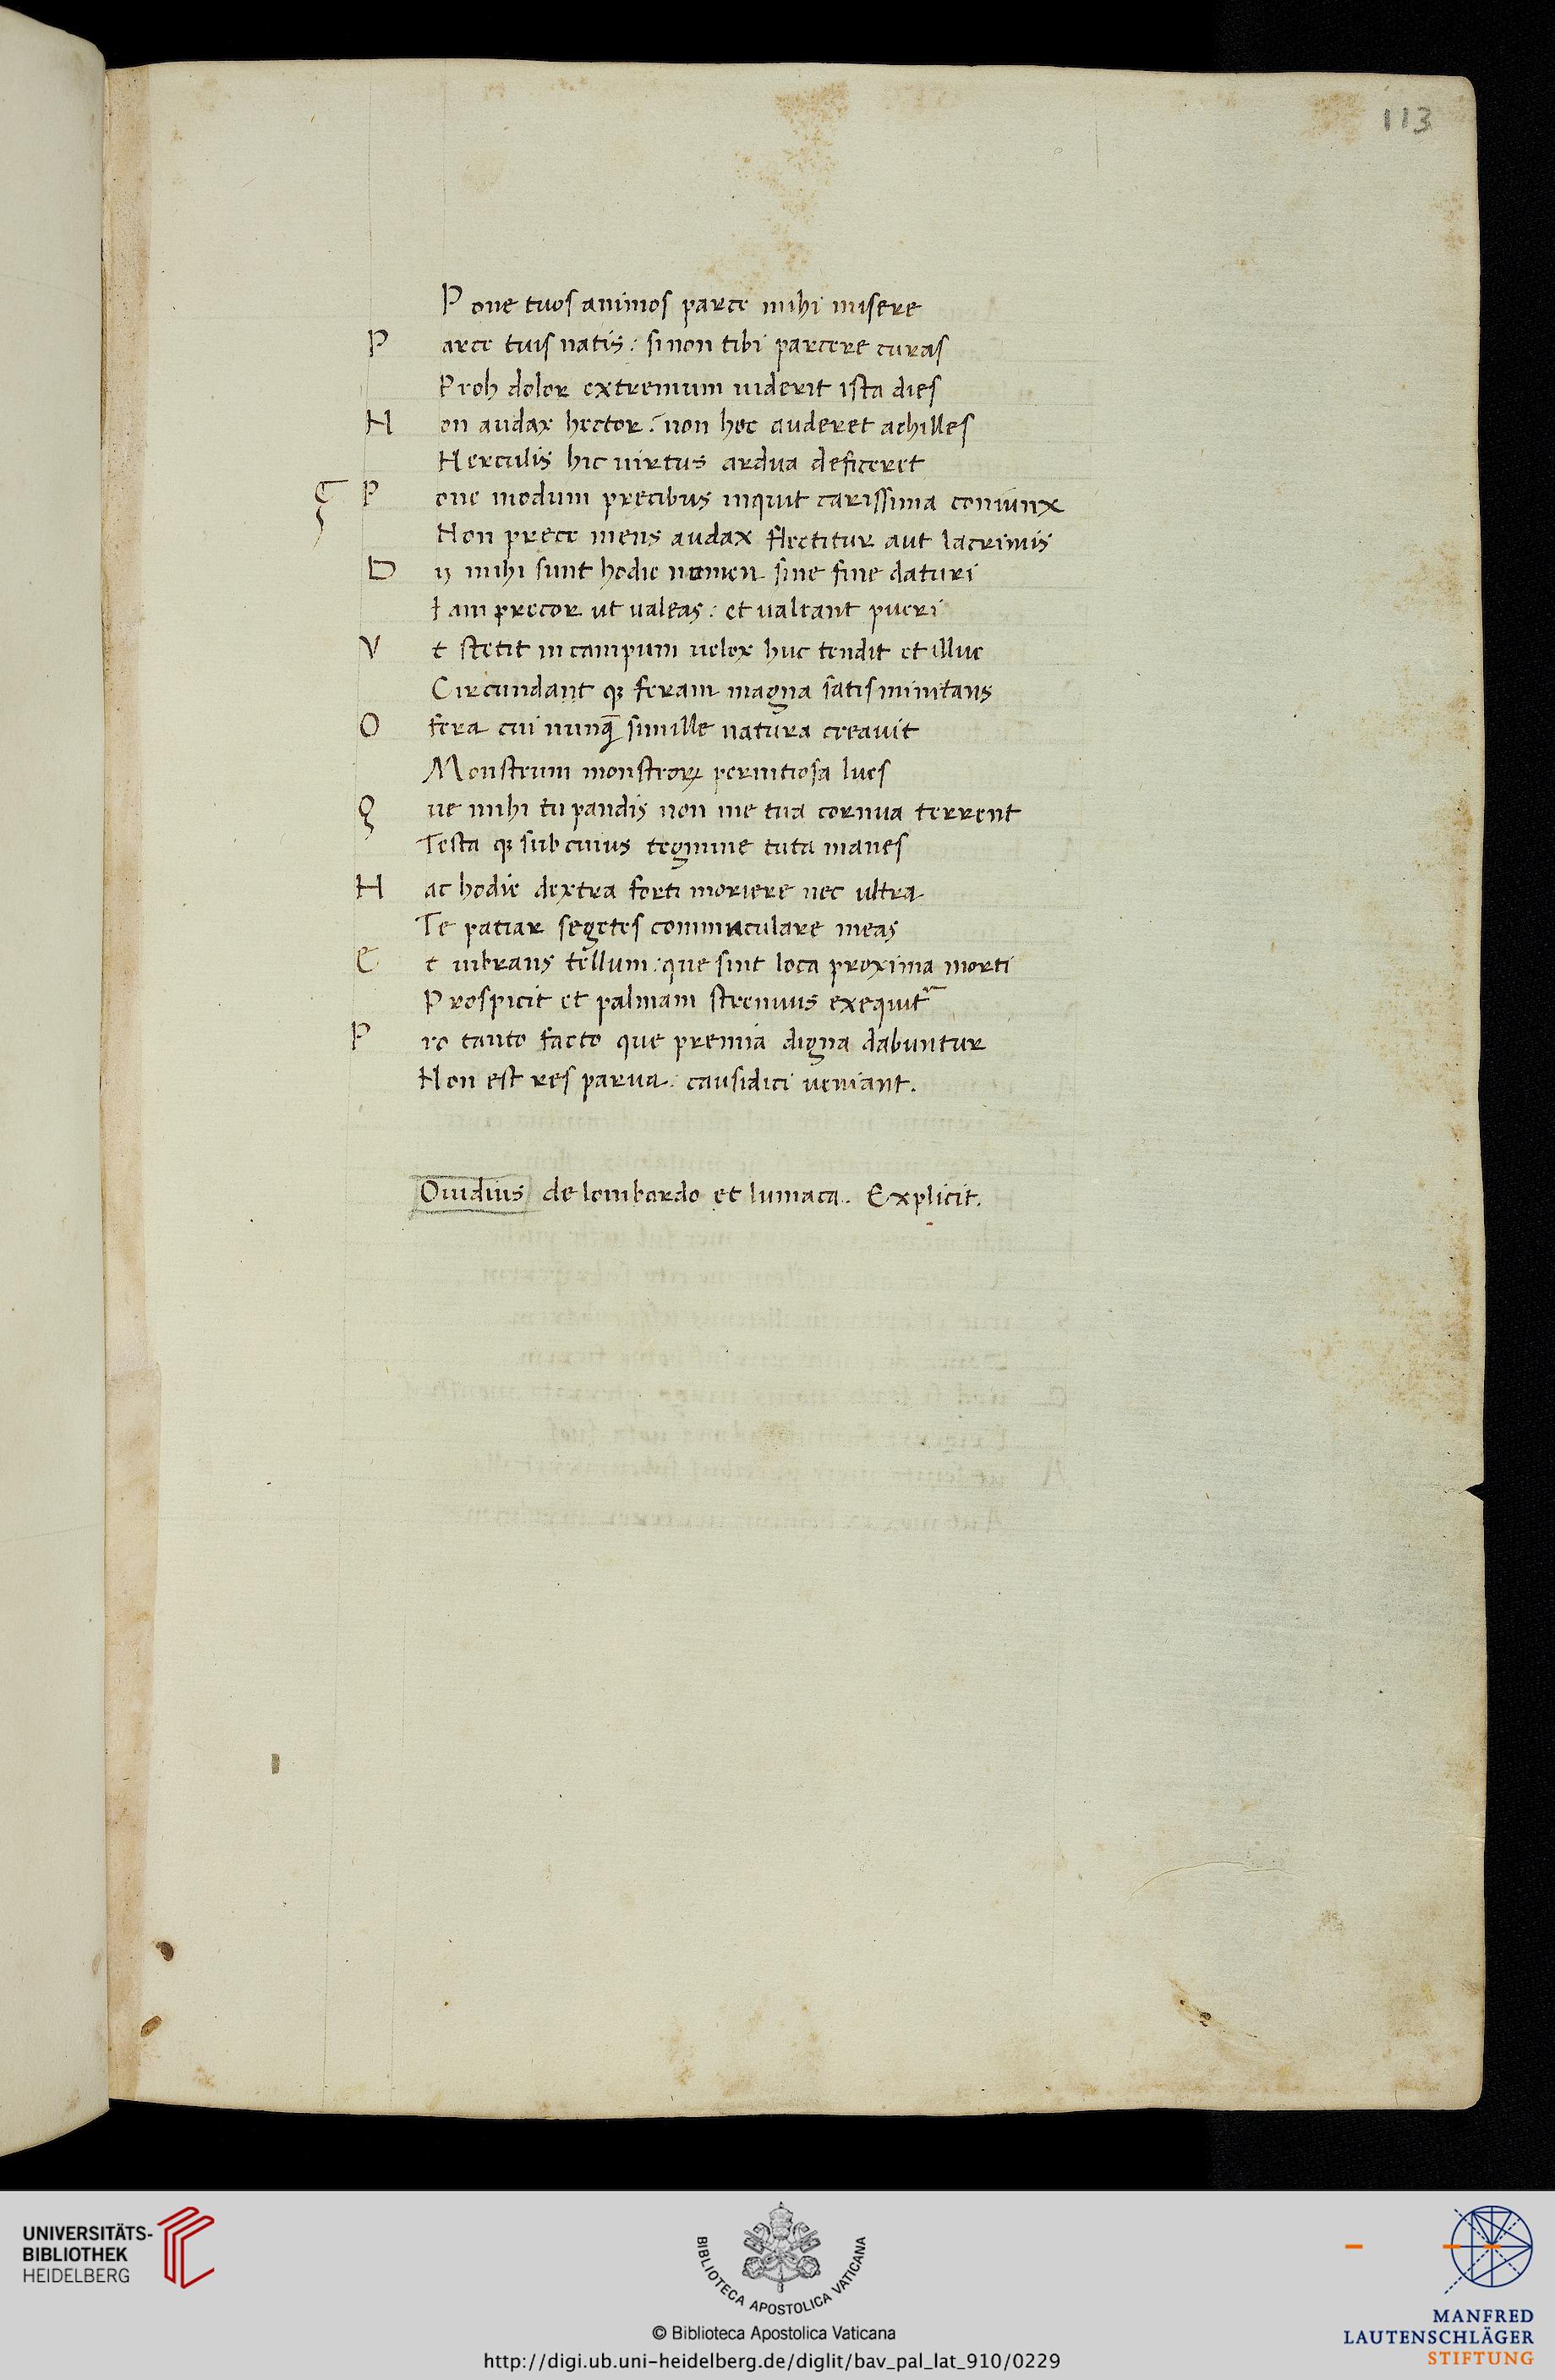 113
Pone tuos animos parce mihi misere
Parce tuis natis: si non tibi parcere curas
Proh dolor extremum uiderit ista dies
Non audax hector: non hoc auderet achilles
Herculis hic uirtus ardua deficeret
Pone modum precibus inquit carissima coniunx
Non prece mens audax flectitur aut lacrimis
Dij mihi sunt hodie nomen sine fine daturi
Iam precor ut ualeas: et ualeant pueri
Vt stetit in campum uelox huc tendit et illuc
Circundant qꝫ feram magna satis minitans
O fera cui nunqꝫ simille natura creauit
Monstrum monstroꝝ pernitiosa lues
Que mihi tu pandis non me tua cornua terrent
Testa qꝫ sub cuius tegmine tuta manes
Hac hodie dextra forti moriere nec ultra
Te patiar segetes commaculare meas
Et uibrans tellum: que sint loca proxima morti
Prospicit et palmam strenuus exequit᷑
Pro tanto facto que premia digna dabuntur
Non est res parua: causidici ueniant.
Ouidius de lombardo et lumaca. Explicit.
UNIVERSITÄTS-
BIBLIOTHEK
HEIDELBERG
BIBLIOTECA APOSTOLICA VATICANA
© Biblioteca Apostolica Vaticana
http://digi.ub.uni-heidelberg.de/diglit/bav_pal_lat_910/0229
MANFRED
LAUTENSCHLÄGER
STIFTUNG